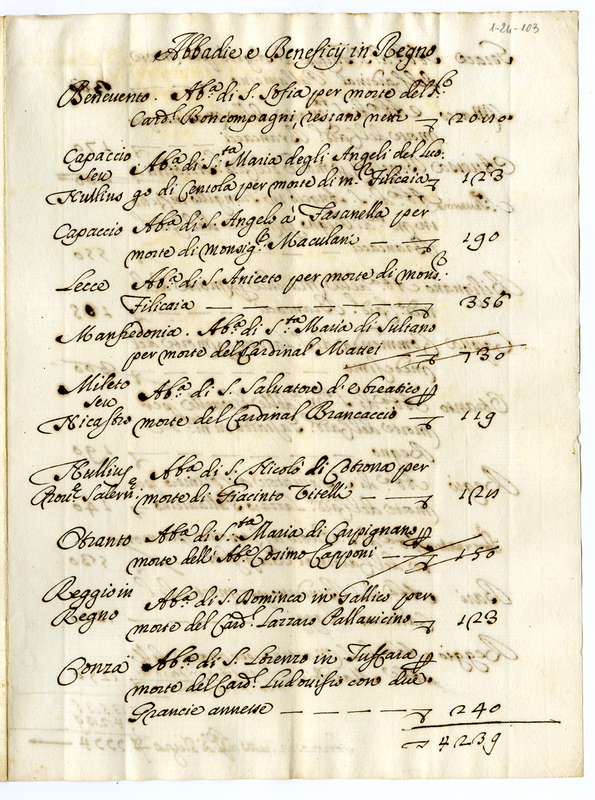 1-24-103
Abbadie e Beneficij in Regno
Benevento. Ab.ª di S. Sofia per morte del S.ʳ
Card.ˡ Boncompagni, restano nette
Capaccio Ab.ª di S.ᵗᵃ Maria degli Angeli del Luo:
seu
Nullius go di Centola per morte di m.ʳ Filicaia 123
Capaccio Ab.ª di S. Angelo à Fasanella per
morte di monsig.ʳ Maculani — — 190
Lecce Ab.ª di S. Aniceto per morte di mons.ʳ
Filicaia — — — — — — — — 356
Manfredonia. Ab.ª di S.ᵗᵃ Maria di Sultano
per morte del Cardinal Mattei 730
Mileto Ab.ª di S. Salvatore di
seu
Nicastro morte del Cardinal Brancaccio — 119
Nullius Ab.ª di S. Nicolò di Cotrona per
morte di Giacinto Titelli — — 120
Otranto Ab.ª di S.ᵗᵃ Maria di Carpignano p
morte dell' Ab.ᵉ Cosimo Capponi — 150
Reggio in Ab.ª di S. Dominca in Gallico per
Regno morte del Card.ˡ Lazzaro Pallavicino 123
Conza Ab.ª di S. Lorenzo in Tuffara p
morte del Card.ˡ Ludovisio con due
Grancie annesse — — — — 240
4239